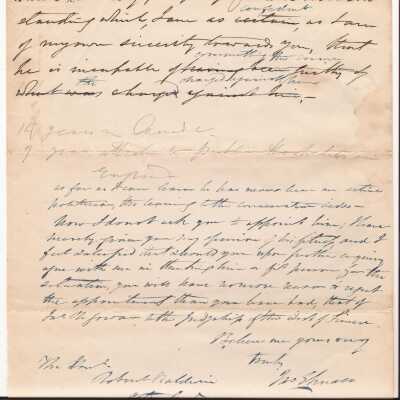 confident
standing which I am as certain, as I am
of my own sincerity towards you, that
committing the
he is incapable of having been guilty of
the charged against him
what was charged against him,-
14 years in Canada.
7 years in Public
England
as far as I can learn he has never been an active
politician, tho leaning to the conservative side-
Now I do not ask you to appoint him, I have
merely given you my opinion of his fitness and I
feel satisfied that should you upon further enquiry
agree with me in thinking him a fit person for the
situation, you will have no more reason to regret
the appointment than you have had, that of
to the Judgeship of the Dist of Simcoe.
Believe me yours very
truly
The Honl.
Robert Baldwin